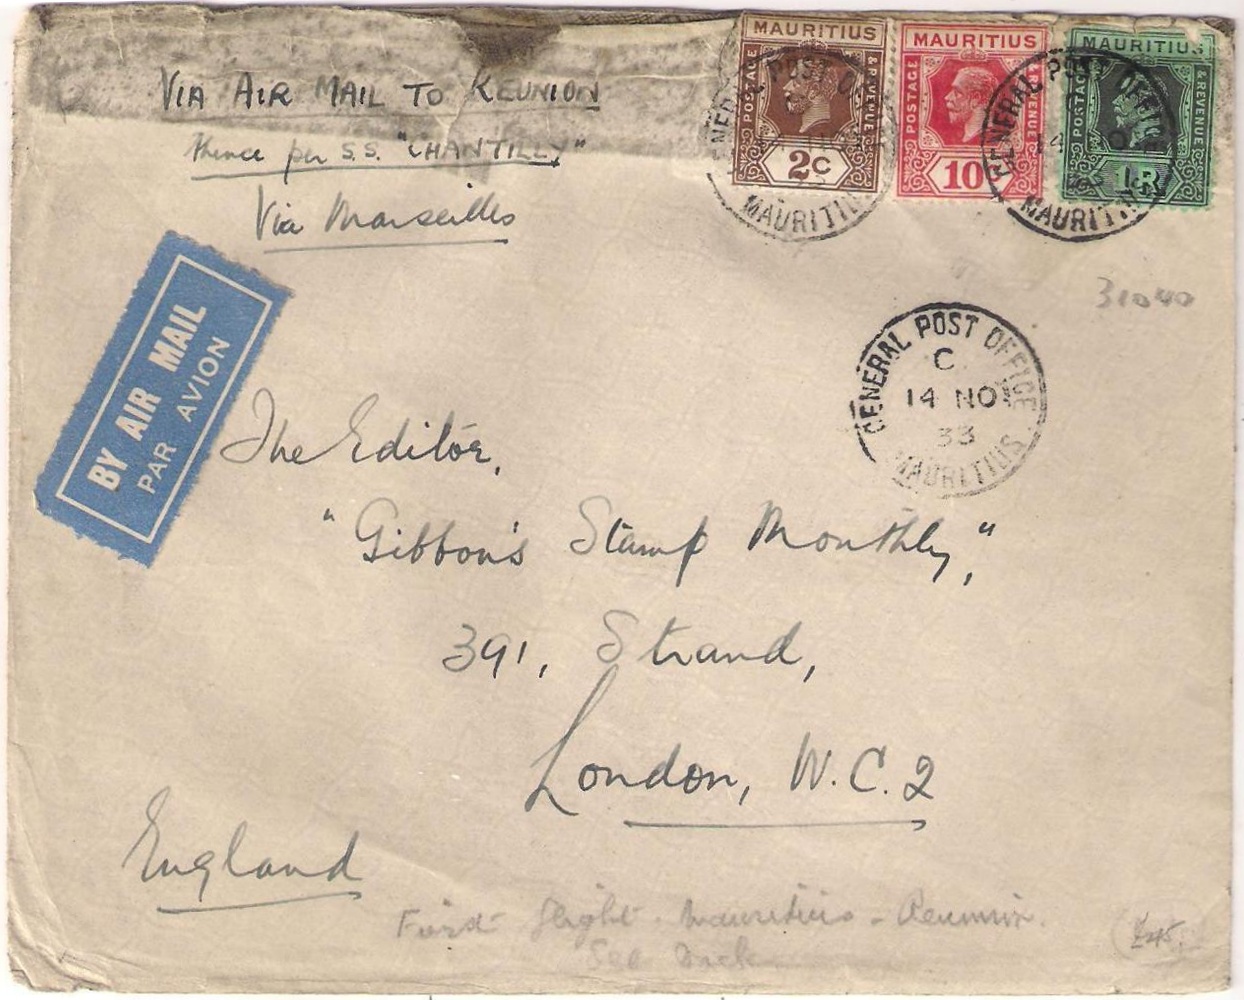 VIA AIR MAIL TO REUNION
thence per S.S. "CHANTILLY"
Via Marseilles
MAURITIUS
POSTAGE & REVENUE
2C
MAURITIUS
POSTAGE & REVENUE
10
MAURITIUS
POSTAGE & REVENUE
1R
GENERAL POST OFFICE
MAURITIUS
GENERAL POST OFFICE
14
MAURITIUS
31040
GENERAL POST OFFICE
C
14 NO
33
MAURITIUS
BY AIR MAIL
PAR AVION
The Editor,
"Gibbon's Stamp Monthly,"
391, Strand,
London, W.C.2
England
First flight - Mauritius - Reunion.
See back